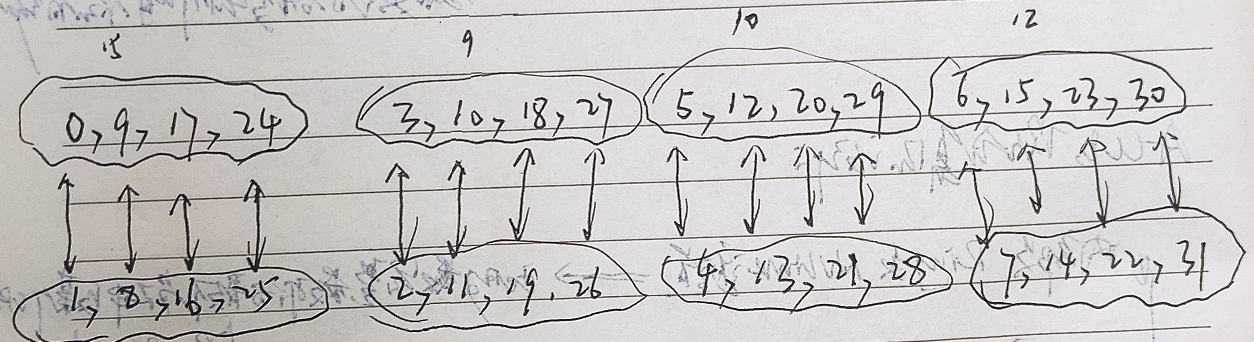 15 9 10 12
0, 9, 17, 24 3, 10, 18, 27 5, 12, 20, 29 6, 15, 23, 30
1, 8, 16, 25 2, 11, 19, 26 4, 13, 21, 28 7, 14, 22, 31